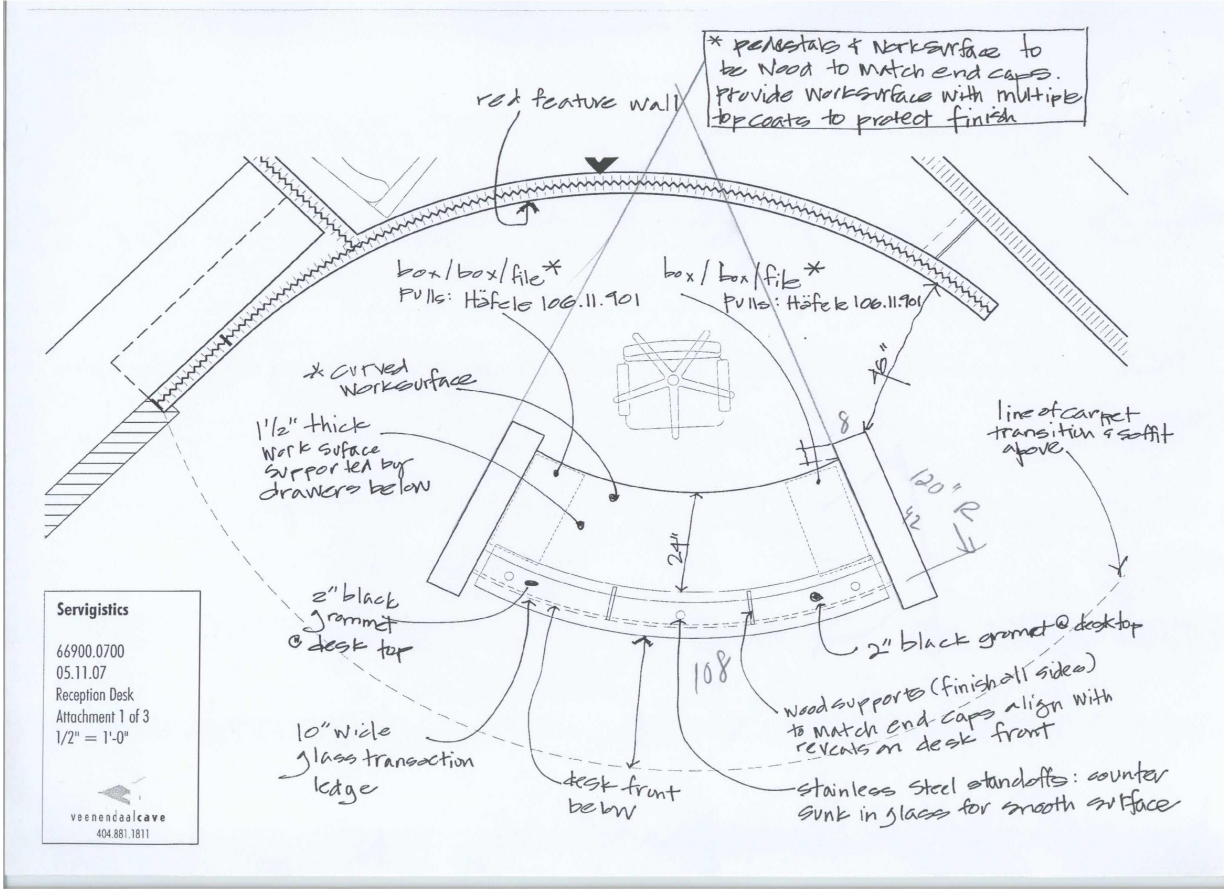 * pedestals & worksurface to
be wood to match end caps.
provide worksurface with multiple
top coats to protect finish
red feature wall
box/box/file*
Pulls: Häfele 106.11.901
box/box/file*
Pulls: Häfele 106.11.901
* curved
worksurface
1 1/2" thick
work suface
supported by
drawers below
8
line of carpet
transition & soffit
above
120" R
42
24"
2" black
grommet
@ desk top
2" black gromet @ desktop
108
wood supports (finish all sides)
to match end caps align with
reveals on desk front
10" wide
glass transaction
ledge
desk front
below
stainless steel standoffs: counter
sunk in glass for smooth surface
Servigistics
66900.0700
05.11.07
Reception Desk
Attachment 1 of 3
1/2" = 1'-0"
veenendaalcave
404.881.1811